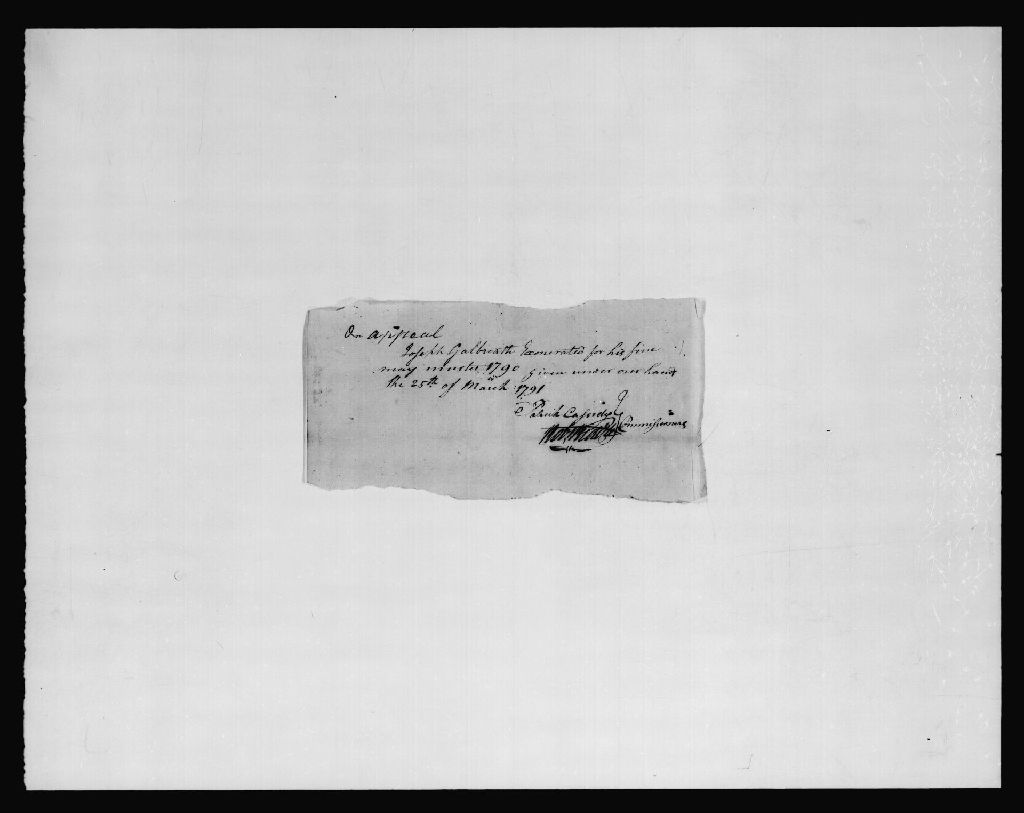 On appeal
Joseph Galbreath Exonerated for his fine
may muster 1790 Given under our hand
the 25th of March 1791
Patrick Cassidy
Commissioners